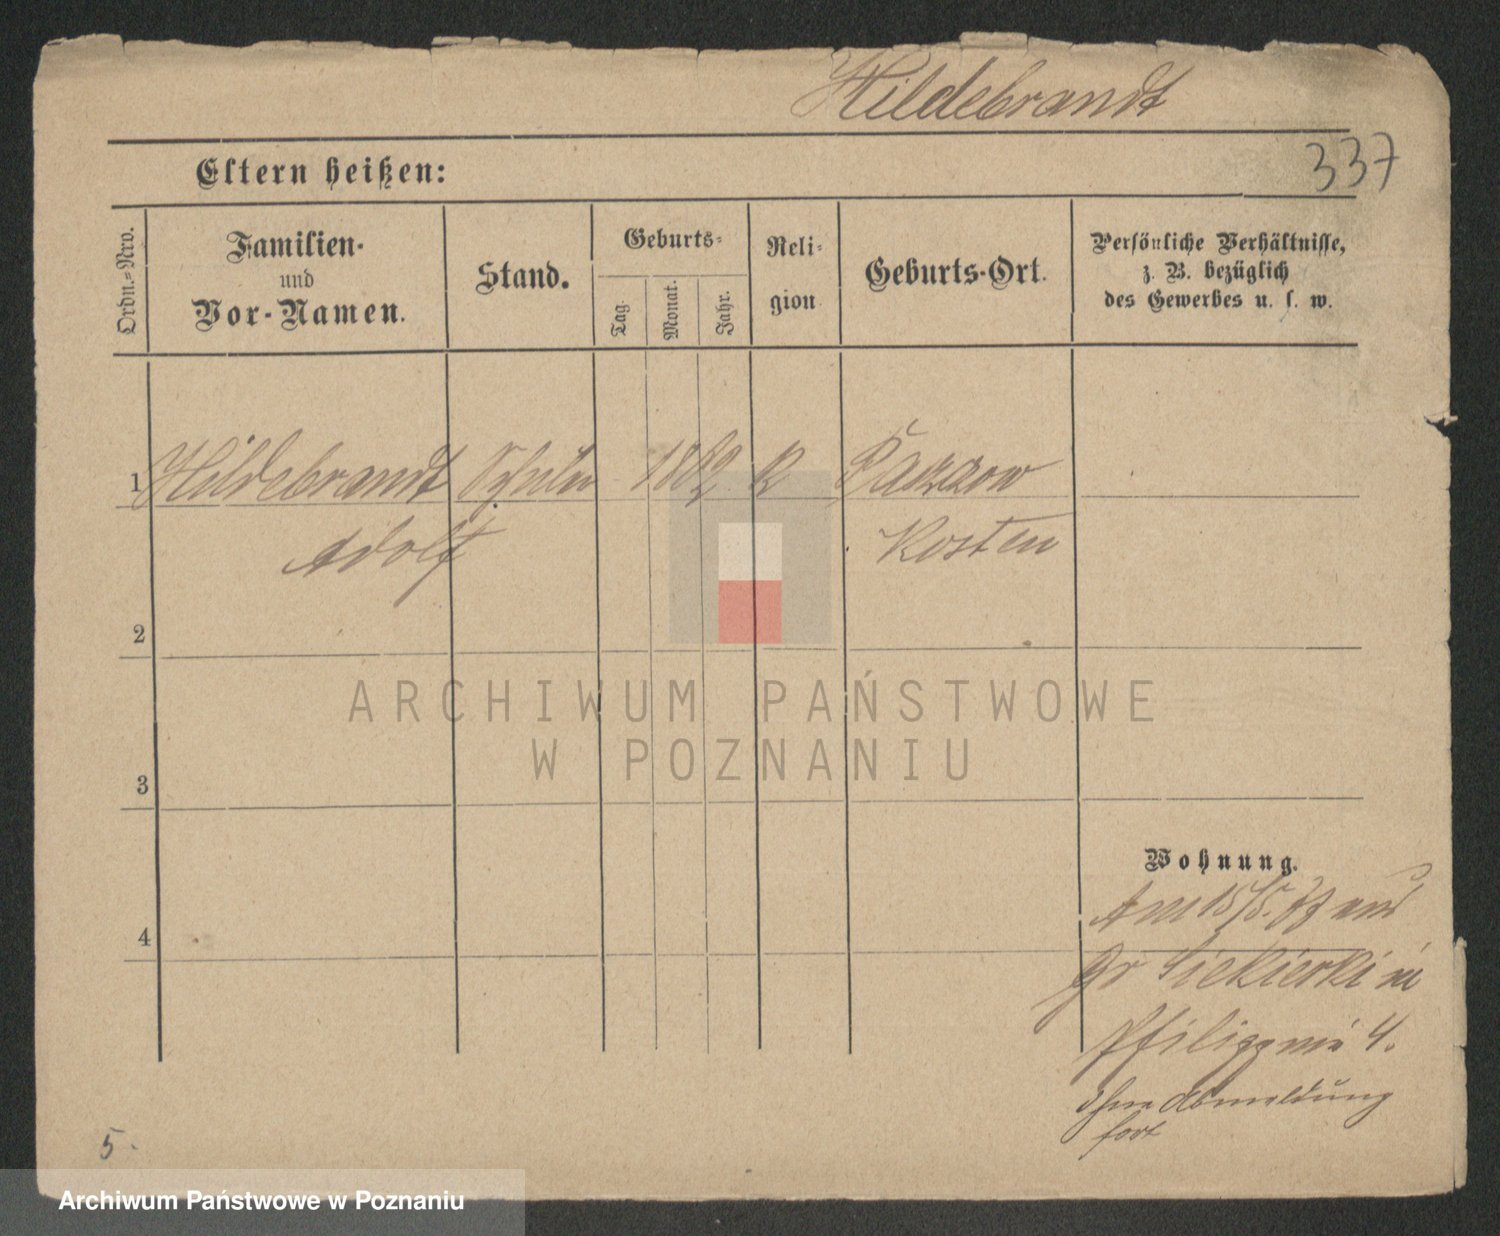 Hildebrandt
337
Eltern heißen:
Ordn.-Nro.
Familien-
und
Vor-Namen.
Stand.
Geburts-
Tag.
Monat.
Jahr.
Reli-
gion
Geburts-Ort.
Persönliche Verhältnisse,
z. B. bezüglich
des Gewerbes u. s. w.
1 Hildebrandt Schüler 1882 K
Adolf Kosten
2
3
4
Wohnung.
Am 15/5. aus
Gr Siekierki in
4.
ohne Abmeldung
fort
5.
ARCHIWUM PAŃSTWOWE
W POZNANIU
Archiwum Państwowe w Poznaniu